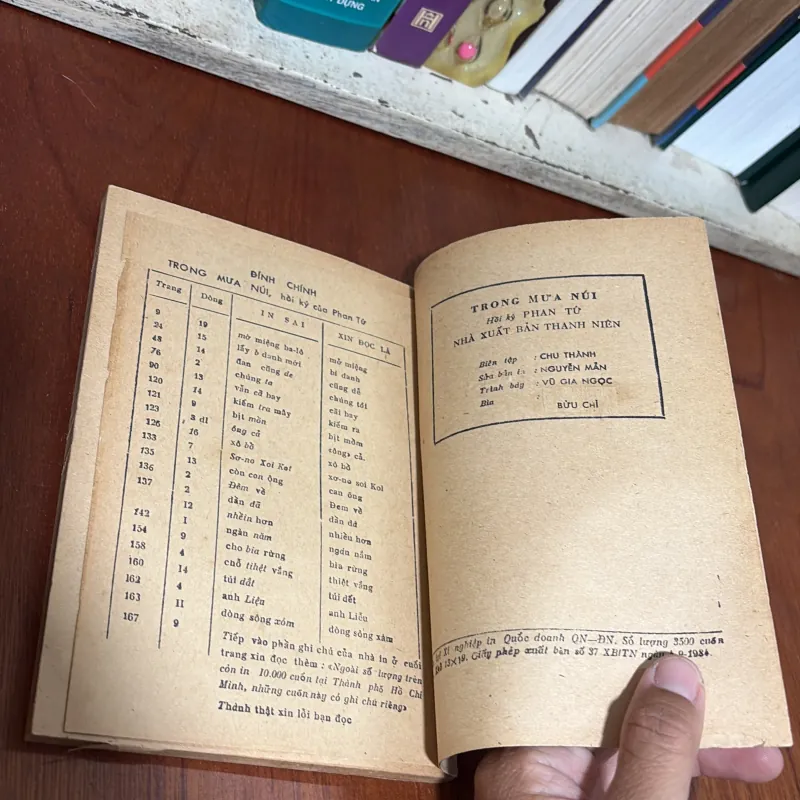 DỰNG
ĐÍNH CHÍNH
TRONG MƯA NÚI, hồi ký của Phan Tứ
Trang Dòng IN SAI XIN ĐỌC LÀ
9 19 mở miệng ba-lô mở miệng
24 15 lấy b danh mới bí danh
48 14 đan cũng de cũng dễ
76 2 chúng ta chúng tôi
90 13 vẫn cả bay cãi bay
120 14 kiếm tra mây kiếm ra
121 9 bịt mòn bịt mồm
123 3 dl ông cả sông» cả.
126 16 xô bồ xô bồ
133 7 Sơ-no Xoi Kot xơ-no soi Kol
135 13 còn con ộng can ông
136 2 Đêm về Đem về
137 2 dần dã dần dà
12 nhềin hơn nhiều hơn
142 1 ngàn năm ngàn nắm
154 9 cho bia rừng bìa rừng
158 4 cuỗ tihệt vắng thiệt vắng
160 14 túi dắt túi dết
162 4 anh Liệu anh Liễu
163 11 dòng sông xóm dòng sông xám
167 9
Tiếp vào phần ghi chú của nhà in ở cuối
trang xin đọc thêm : «Ngoài số lượng trên
còn in 10.000 cuốn tại Thành phố Hồ Chí
Minh, những cuốn này có ghi chú riêng»
Thành thật xin lỗi bạn đọc
TRONG MƯA NÚI
Hồi ký PHAN TỨ
NHÀ XUẤT BẢN THANH NIÊN
Biên tập : CHU THÀNH
Sửa bản in : NGUYỄN MẪN
Trình bày : VŨ GIA NGỌC
Bìa : BỬU CHỈ
Xí nghiệp in Quốc doanh QN—ĐN. Số lượng 3500 cuốn
13×19. Giấy phép xuất bản số 37 XB/TN ngày 9-1984.